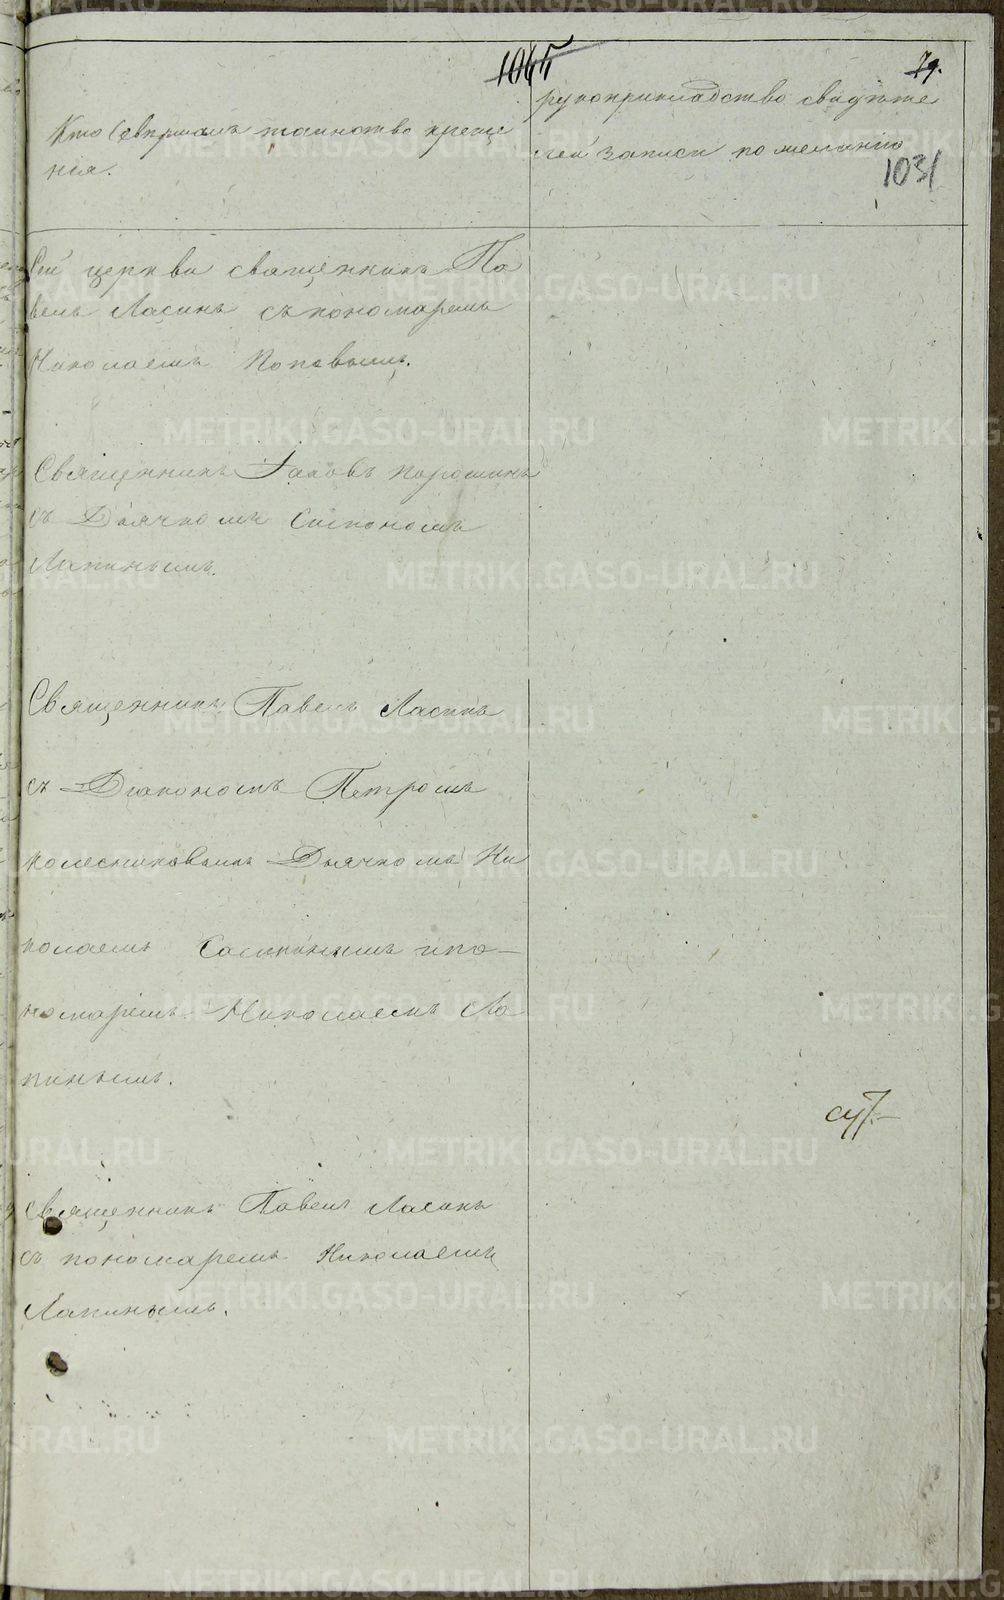 1065
79.
Кто Совершалъ таинство креще
нія.
рукоприкладство свидѣте
лей записи по желанію
1031
Сей церкви священникъ Па
велъ Ласинъ съ пономаремъ
Николаемъ Поповымъ.
Священникъ Іаковъ Порошинъ
съ Дьячкомъ Стефаномъ
Лапинымъ.
Священникъ Павелъ Ласинъ
съ Діакономъ Петромъ
Колесниковымъ Дьячкомъ Ни
колаемъ ипо-
номаремъ Николаемъ Ла
пинымъ.
Священникъ Павелъ Ласинъ
съ пономаремъ Николаемъ
Лапинымъ.
METRIKI.GASO-URAL.RU